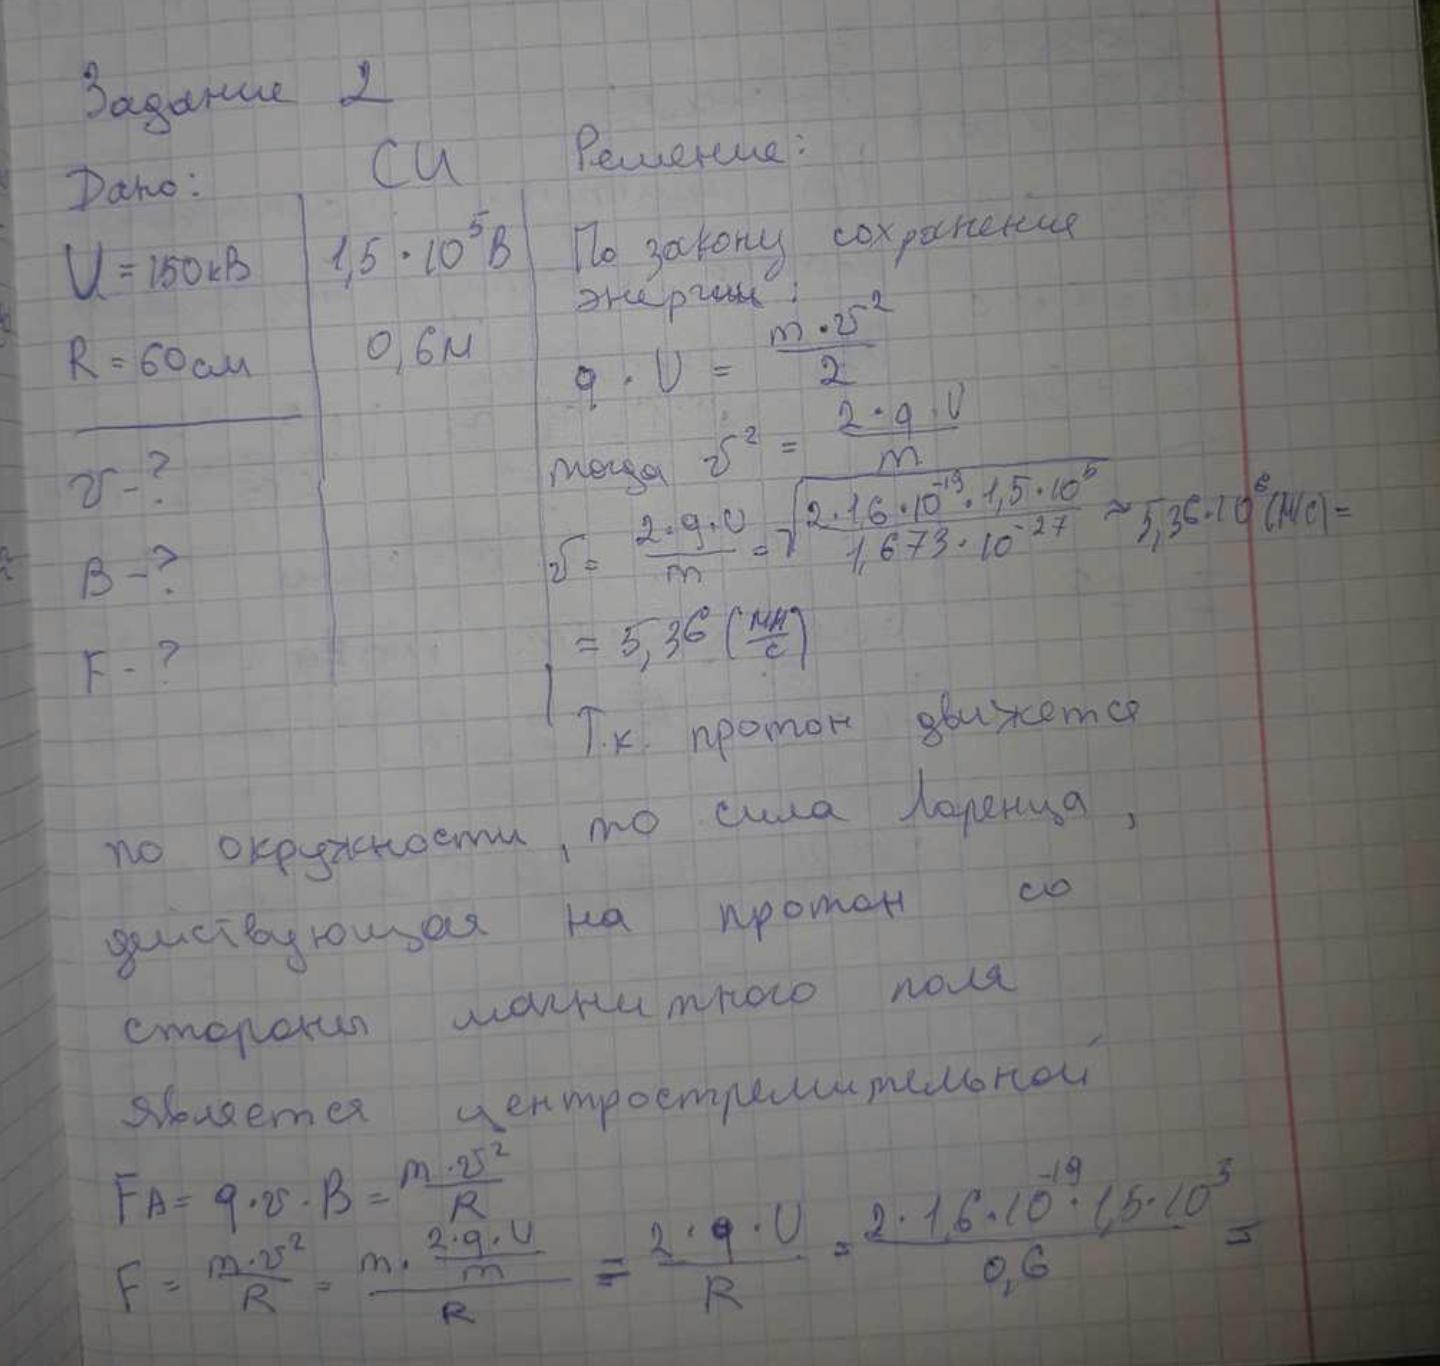 Задание 2
Дано: СИ Решение:
U = 150 кВ 1,5 · 10^5 В По закону сохранения
энергии:
R = 60 см 0,6 м q · U = m · v^2 / 2
тогда v^2 = 2 · q · U / m
v - ?
v = 2 · q · U / m = √(2 · 1,6 · 10^-19 · 1,5 · 10^5 / 1,673 · 10^-27) ≈ 5,36 · 10^6 (м/с) =
B - ?
F - ? = 5,36 (Мм/с)
Т.к. протон движется
по окружности, то сила Лоренца,
действующая на протон со
стороны магнитного поля
является центростремительной
FЛ = q · v · B = m · v^2 / R
F = m · v^2 / R = m · (2 · q · U / m) / R = 2 · q · U / R = 2 · 1,6 · 10^-19 · 1,5 · 10^5 / 0,6 =